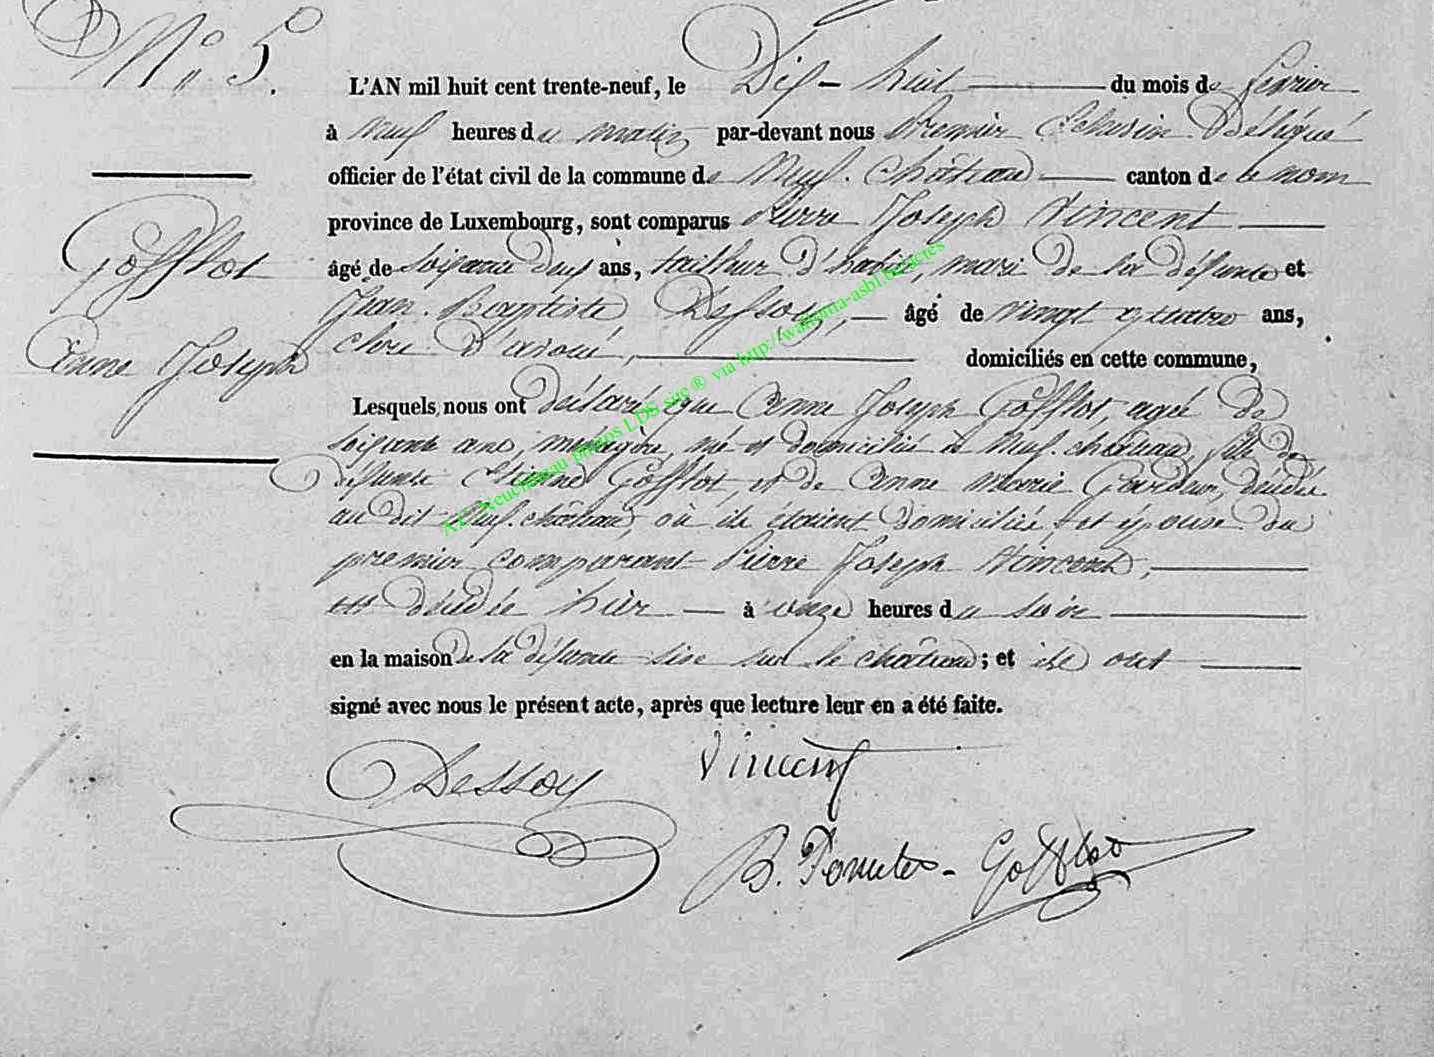 N° 5.
L'AN mil huit cent trente-neuf, le Dix-huit du mois de février
à neuf heures du matin par-devant nous Premier Echevin Délégué
officier de l'état civil de la commune de Neuf-Château canton de ce nom
province de Luxembourg, sont comparus Pierre Joseph Vincent
Gofflot
âgé de soixante deux ans, tailleur d'habits, mari de la défunte et
Jean-Baptiste Dessoy, âgé de vingt quatre ans,
Anne Joseph
clerc d'avoué, domiciliés en cette commune,
Lesquels nous ont déclaré que Anne Joseph Gofflot, agée de
soixante ans, ménagère, née et domiciliée à Neuf-château, fille de
défunts Etienne Gofflot, et de Anne Marie Gardeur, décédés
au dit Neuf-château, où ils étaient domiciliés, et épouse du
premier comparant Pierre Joseph Vincent,
est décédée hier à onze heures du soir
en la maison de la défunte sise sur le château; et ils ont
signé avec nous le présent acte, après que lecture leur en a été faite.
Dessoy Vincent
B. Gofflot
A.C. Neuchâteau photos LDS sue ® via http://wallonia-asbl.be/actes